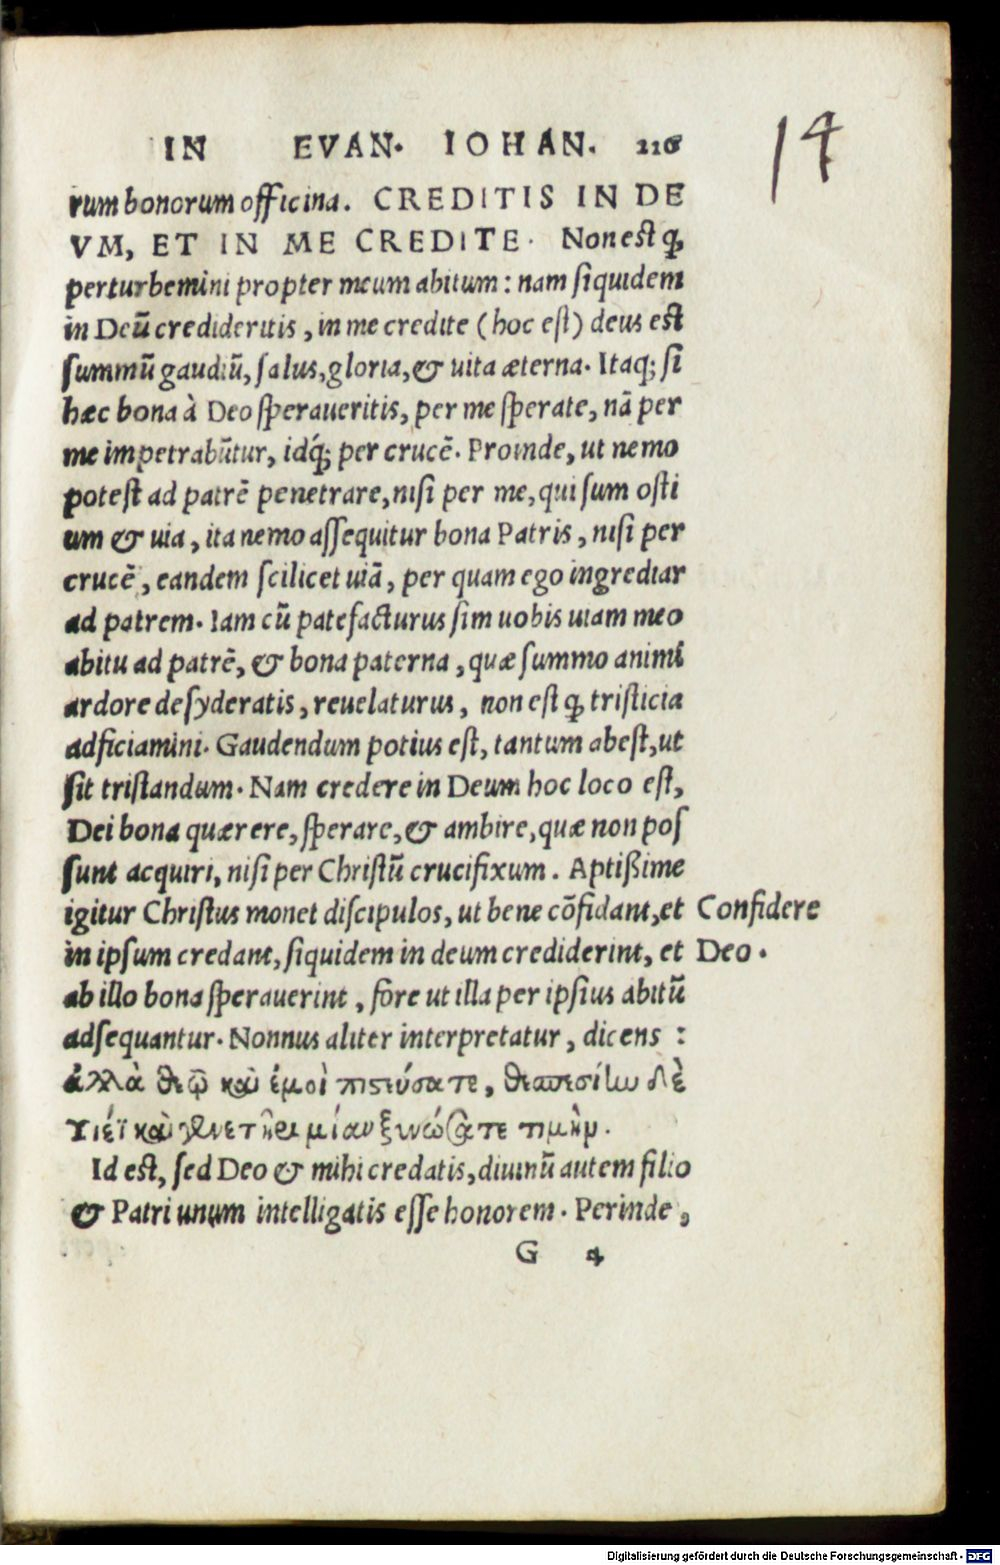 IN EVAN. IOHAN. 116
14
rum bonorum officina. CREDITIS IN DE
VM, ET IN ME CREDITE. Non est ꝙ
perturbemini propter meum abitum: nam siquidem
in Deũ credideritis, in me credite (hoc est) deus est
summũ gaudiũ, salus, gloria, & uita æterna. Itaq; si
hæc bona à Deo speraueritis, per me sperate, nã per
me impetrabũtur, idq́; per crucẽ. Proinde, ut nemo
potest ad patrẽ penetrare, nisi per me, qui sum osti
um & uia, ita nemo assequitur bona Patris, nisi per
crucẽ, eandem scilicet uiã, per quam ego ingrediar
ad patrem. Iam cũ patefacturus sim uobis uiam meo
abitu ad patrẽ, & bona paterna, quæ summo animi
ardore desyderatis, reuelaturus, non est ꝙ tristicia
adficiamini. Gaudendum potius est, tantum abest, ut
sit tristandum. Nam credere in Deum hoc loco est,
Dei bona quærere, sperare, & ambire, quæ non pos
sunt acquiri, nisi per Christũ crucifixum. Aptißime
igitur Christus monet discipulos, ut bene cõfidant, et Confidere
in ipsum credant, siquidem in deum crediderint, et Deo.
ab illo bona sperauerint, fore ut illa per ipsius abitũ
adsequantur. Nonnus aliter interpretatur, dicens:
ἀλλὰ θεῷ καὶ ἐμοὶ πιστεύσατε, δὲ
καὶ μίαν τιμήν.
Id est, sed Deo & mihi credatis, diuinũ autem filio
& Patri unum intelligatis esse honorem. Perinde,
G 4
Digitalisierung gefördert durch die Deutsche Forschungsgemeinschaft - DFG